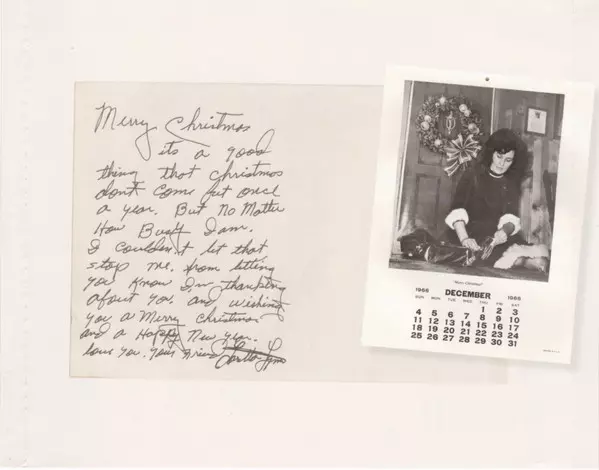 Merry Christmas
its a good
thing that Christmas
don't Come but once
a year. But No Matter
How Busy I am.
I couldn't let that
stop me. from letting
you Know I'm thanking
about you, and wishing
you a Merry Christmas
and a Happy New Year.
Love you. Your Friend Loretta Lynn
"Merry Christmas"
1966 DECEMBER 1966
SUN MON TUE WED THU FRI SAT
1 2 3
4 5 6 7 8 9 10
11 12 13 14 15 16 17
18 19 20 21 22 23 24
25 26 27 28 29 30 31